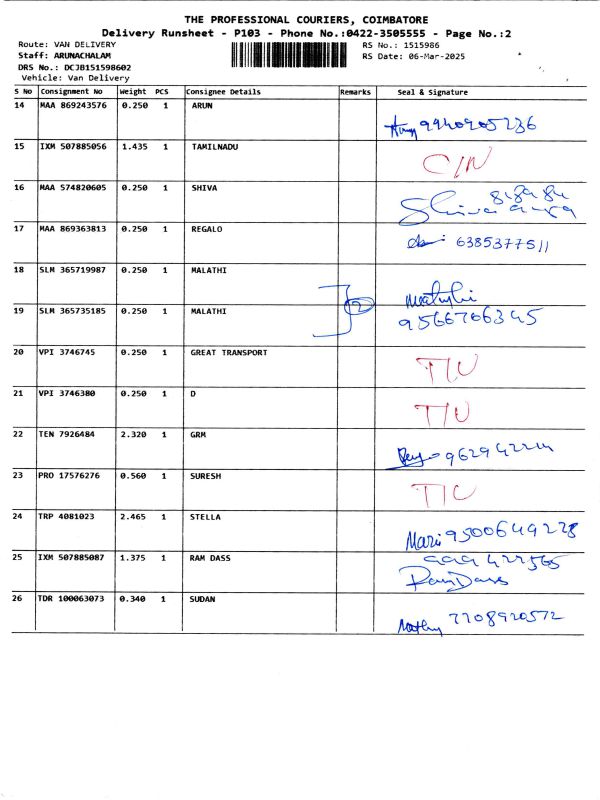 THE PROFESSIONAL COURIERS, COIMBATORE
Delivery Runsheet - P103 - Phone No.:0422-3505555 - Page No.:2
Route: VAN DELIVERY RS No.: 1515986
Staff: ARUNACHALAM RS Date: 06-Mar-2025
DRS No.: DCJB151598602
Vehicle: Van Delivery
S No Consignment No Weight PCS Consignee Details Remarks Seal & Signature
14 MAA 869243576 0.250 1 ARUN
9940905236
15 IXM 507885056 1.435 1 TAMILNADU
C/N
16 MAA 574820605 0.250 1 SHIVA
Shiva
17 MAA 869363813 0.250 1 REGALO
6385377511
18 SLM 365719987 0.250 1 MALATHI
Malathi
19 SLM 365735185 0.250 1 MALATHI 2
9566706345
20 VPI 3746745 0.250 1 GREAT TRANSPORT
21 VPI 3746380 0.250 1 D
22 TEN 7926484 2.320 1 GRM
23 PRO 17576276 0.560 1 SURESH
24 TRP 4081023 2.465 1 STELLA
Mari 9500649228
25 IXM 507885087 1.375 1 RAM DASS
Ram Dass
26 TDR 100063073 0.340 1 SUDAN
7708920572